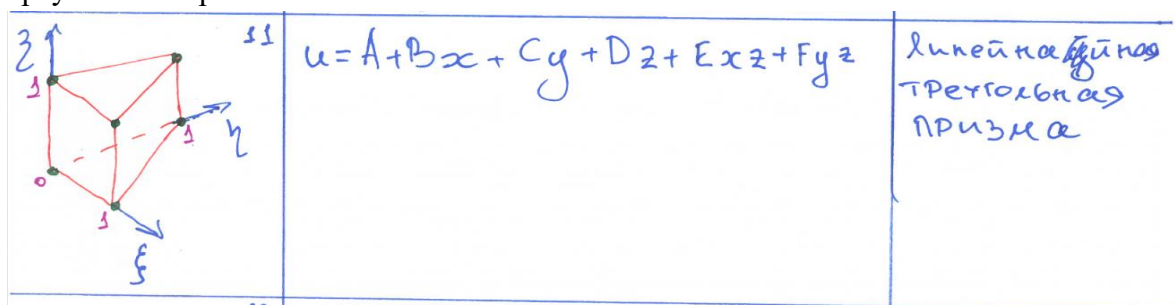 11
ζ
1
0
1
1
η
ξ
u = A + Bx + Cy + Dz + Exz + Fyz
линейная
треугольная
призма